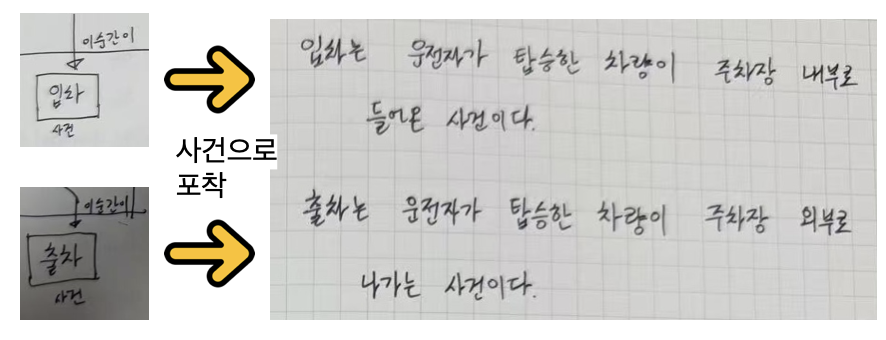 이순간이
입차
사건
사건으로
포착
입차는 운전자가 탑승한 차량이 주차장 내부로
들어온 사건이다.
이순간이
출차
사건
출차는 운전자가 탑승한 차량이 주차장 외부로
나가는 사건이다.